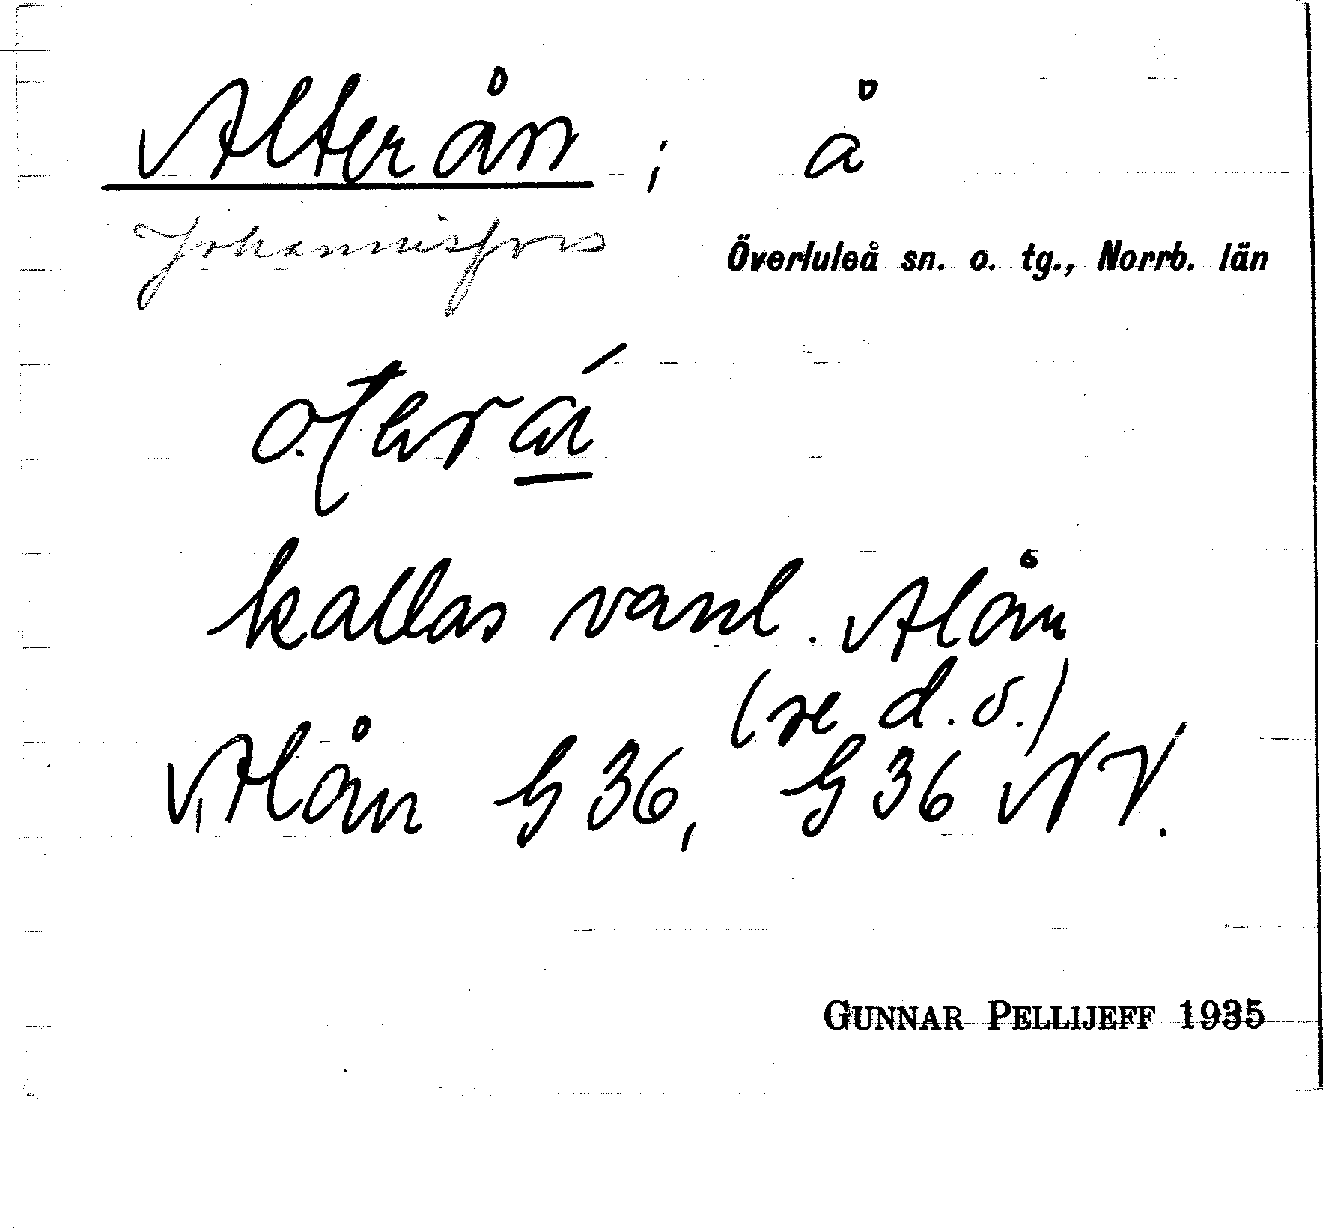 Alterån ; å
Johannisfors
Överluleå sn. o. tg., Norrb. län
kallas vanl. Alån
(se d.o.)
Alån G 36, G 36 NV.
GUNNAR PELLIJEFF 1935